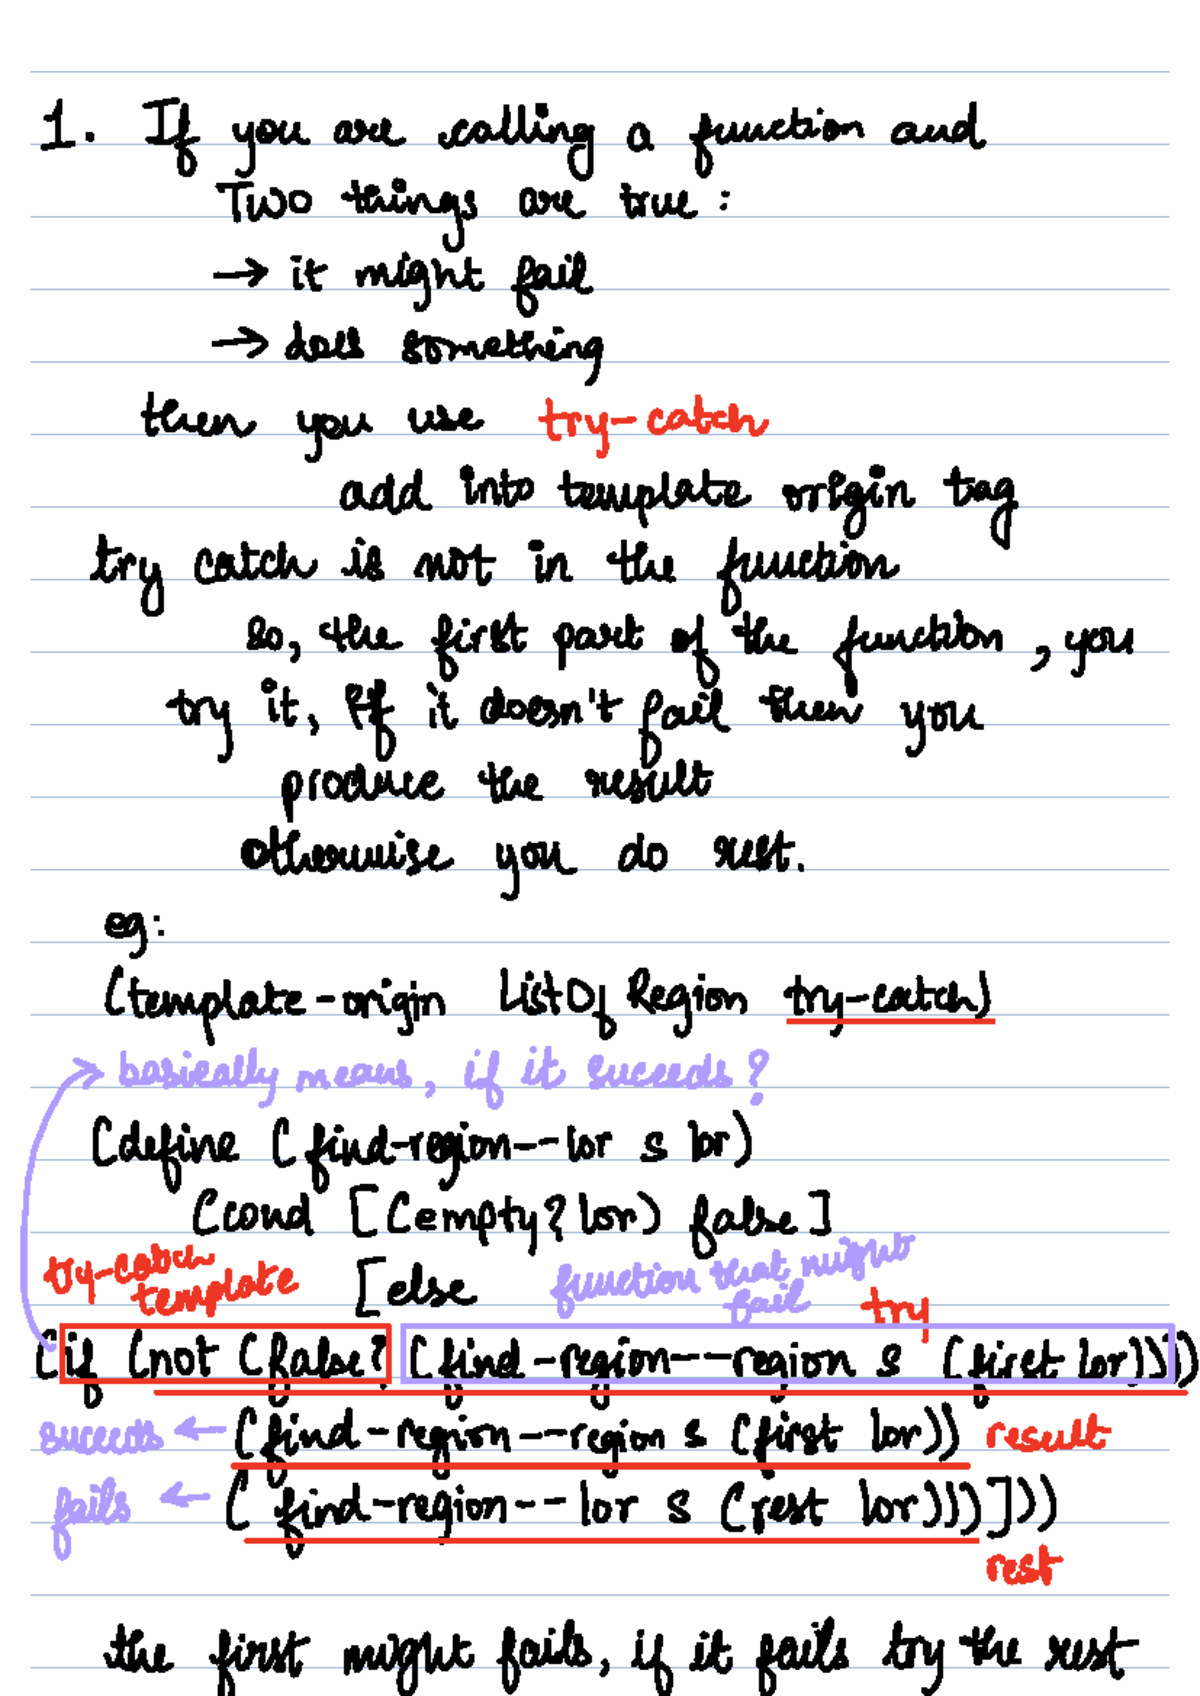 1. If you are calling a function and
Two things are true :
→ it might fail
→ does something
then you use try-catch
add into template origin tag
try catch is not in the function
so, the first part of the function , you
try it, If it doesn't fail then you
produce the result
otherwise you do rest.
eg:
(template-origin ListOf Region try-catch)
→ basically means, if it suceeds?
(define (find-region--lor s lor)
(cond [(empty? lor) false]
try-catch template
[else
function that might fail
try
(if (not (false? (find-region--region s (first lor))))
suceeds ← (find-region--region s (first lor)) result
fails ← ( find-region--lor s (rest lor)))]))
rest
the first might fails, if it fails try the rest